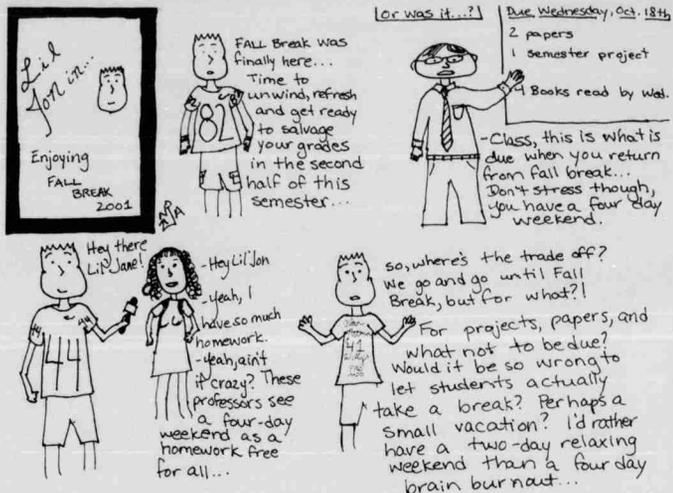 Lil
Jon in...
Enjoying
FALL
BREAK
2001
FALL Break was
finally here...
Time to
unwind, refresh
and get ready
to salvage
your grades
in the second
half of this
semester...
82
Or was it...?
Due Wednesday, Oct. 18th
2 papers
1 semester project
4 Books read by Wed.
-Class, this is what is
due when you return
from fall break...
Don't stress though,
you have a four day
weekend.
Hey there
Lil' Jane!
44
44
-Hey Lil' Jon
-yeah, I
have so much
homework.
-yeah, ain't
it crazy? These
professors see
a four-day
weekend as a
homework free
for all...
41
so, where's the trade off?
We go and go until Fall
Break, but for what?!
For projects, papers, and
what not to be due?
Would it be so wrong to
let students actually
take a break? Perhaps a
small vacation? I'd rather
have a two-day relaxing
weekend than a four day
brain burnout...